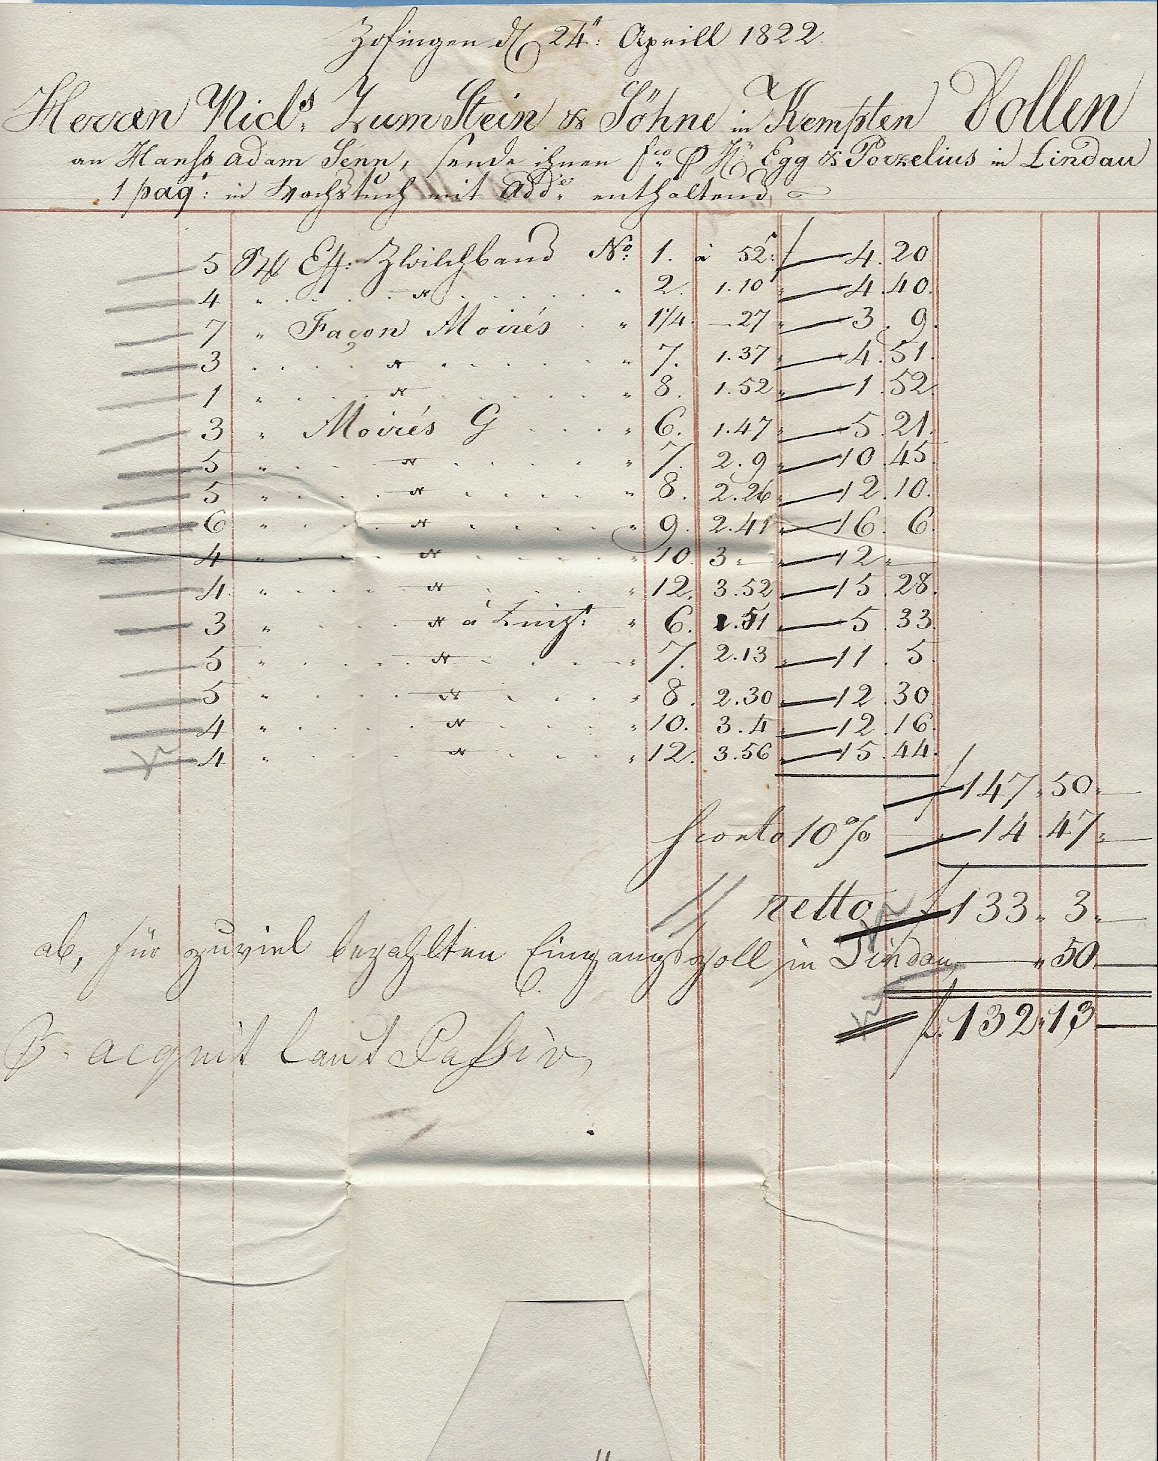 Zofingen d 24ᵗ: Aprill 1822.
Herren Niclˢ: ZumStein & Söhne in Kempten Sollen
an Hanss adam Senn, sende ihnen fco P HH Egg & Porzelius in Lindau
1 paq: in Wachstuch mit add: enthaltend
5 Eff: Zwilchband No: 1. à 52: f 4. 20
4 " " " 2. 1.10 " 4. 40.
7 " Façon Moirés " 1¼. 27 " 3. 9.
3 " " 7. 1.37 " 4. 51.
1 " " " 8. 1.52 " 1. 52.
3 " Moirés G " 6. 1.47 " 5. 21.
5 " " " 7. 2.9 " 10. 45
5 " " " 8. 2.26 " 12. 10.
6 " " " 9. 2.41 " 16. 6.
4 " " " 10. 3 " " 12 "
4 " " " 12. 3.52 " 15. 28.
3 " " à " 6. 1.51 " 5. 33
5 " " " 7. 2.13 " 11. 5.
5 " " " 8. 2.30 " 12. 30
4 " " " 10. 3.4 " 12. 16.
4 " " " 12. 3.56 " 15. 44.
f 147. 50.
Sconto 10% 14. 47.
netto f 133. 3.
ab, für zuviel bezahlten Eingangszoll in Lindau " 50.
f. 132. 13
P. acquit laut